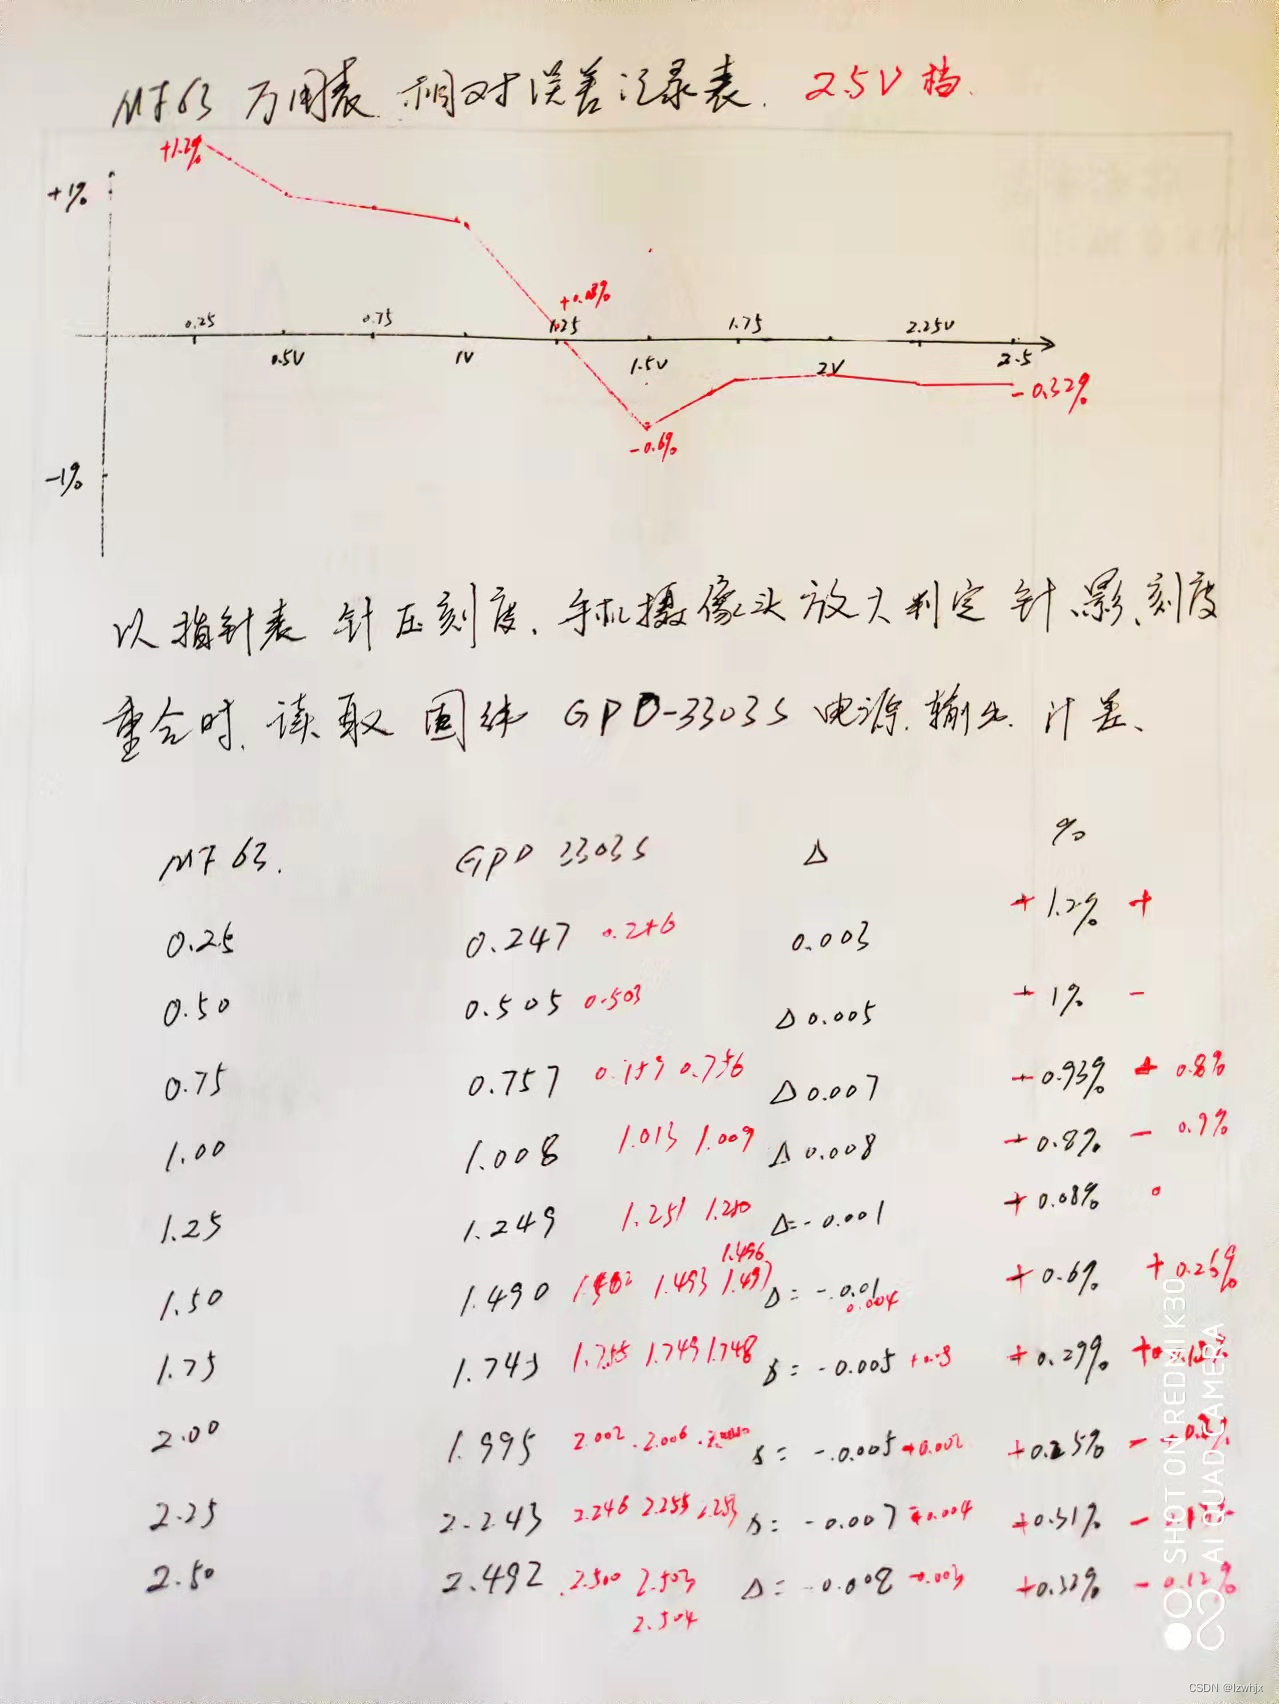 MF63 万用表 相对误差记录表. 2.5V 档.
+1.2%
+1%
+0.08%
0.25 0.75 1.25 1.75 2.25V
0.5V 1V 1.5V 2V 2.5
-0.32%
-0.6%
-1%
以指针表 针压刻度、手机摄像头放大判定 针、影、刻度
重合时、读取 固纬 GPD-3303S 电源、输出、计差、
MF63. GPD 3303S Δ %
0.25 0.247 0.246 0.003 +1.2% +
0.50 0.505 0.503 Δ0.005 -1% -
0.75 0.757 0.759 0.756 Δ0.007 -0.93% 0.8%
1.00 1.008 1.013 1.009 Δ0.008 -0.8% - 0.9%
1.25 1.249 1.251 1.250 Δ=-0.001 +0.08% 0
1.496
1.50 1.490 1.493 1.497 Δ=-.0.01 +0.6% +0.26%
0.004
1.75 1.745 1.755 1.749 1.748 Δ=-0.005 +0.29%
2.00 1.995 2.002 . 2.006 . Δ=-.0.005 +0.002 +0.25% -
2.25 2.243 2.246 2.255 2.253 Δ=-0.007 0.004 +0.31% -
2.50 2.492 2.500 2.503 Δ=-0.008 -0.003 +0.32% -0.12%
2.504
SHOT ON REDMI K30
AI QUAD CAMERA
CSDN @lzwhjx